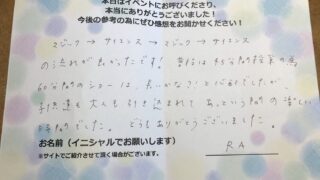 本日はイベントにお呼びくださり、
本当にありがとうございました!
今後の参考の為にぜひ感想をお聞かせください!
マジック → サイエンス → マジック → サイエンス
の流れが良かったです! 普段は45分の授業の為
60分間のショーは、長いかな?と心配でしたが、
子供達も大人も引き込まれて、あっという間の楽しい
時間でした。 どうもありがとうございました。
お名前(イニシャルでお願いします)
※サイトでご紹介させて頂く場合がございます。
R A